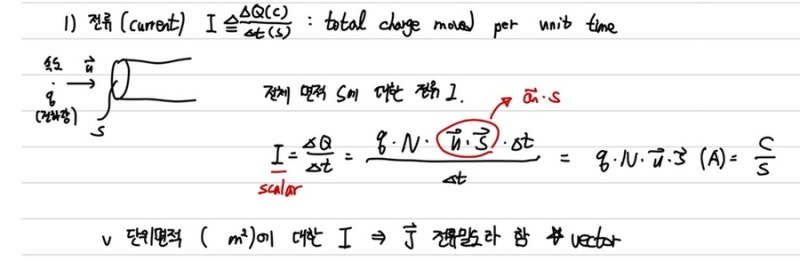 1) 전류 (current) I ≜ ΔQ(C)/Δt(s) : total charge moved per unit time
속도 u⃗
q
(전하량)
S
전체 면적 S에 대한 전류 I.
a⃗n·S
I = ΔQ/Δt = q·N·u⃗·S⃗·Δt/Δt = q·N·u⃗·S⃗ (A) = C/S
scalar
v 단위면적 ( m²)에 대한 I ⇒ J⃗ 전류밀도라 함 * vector